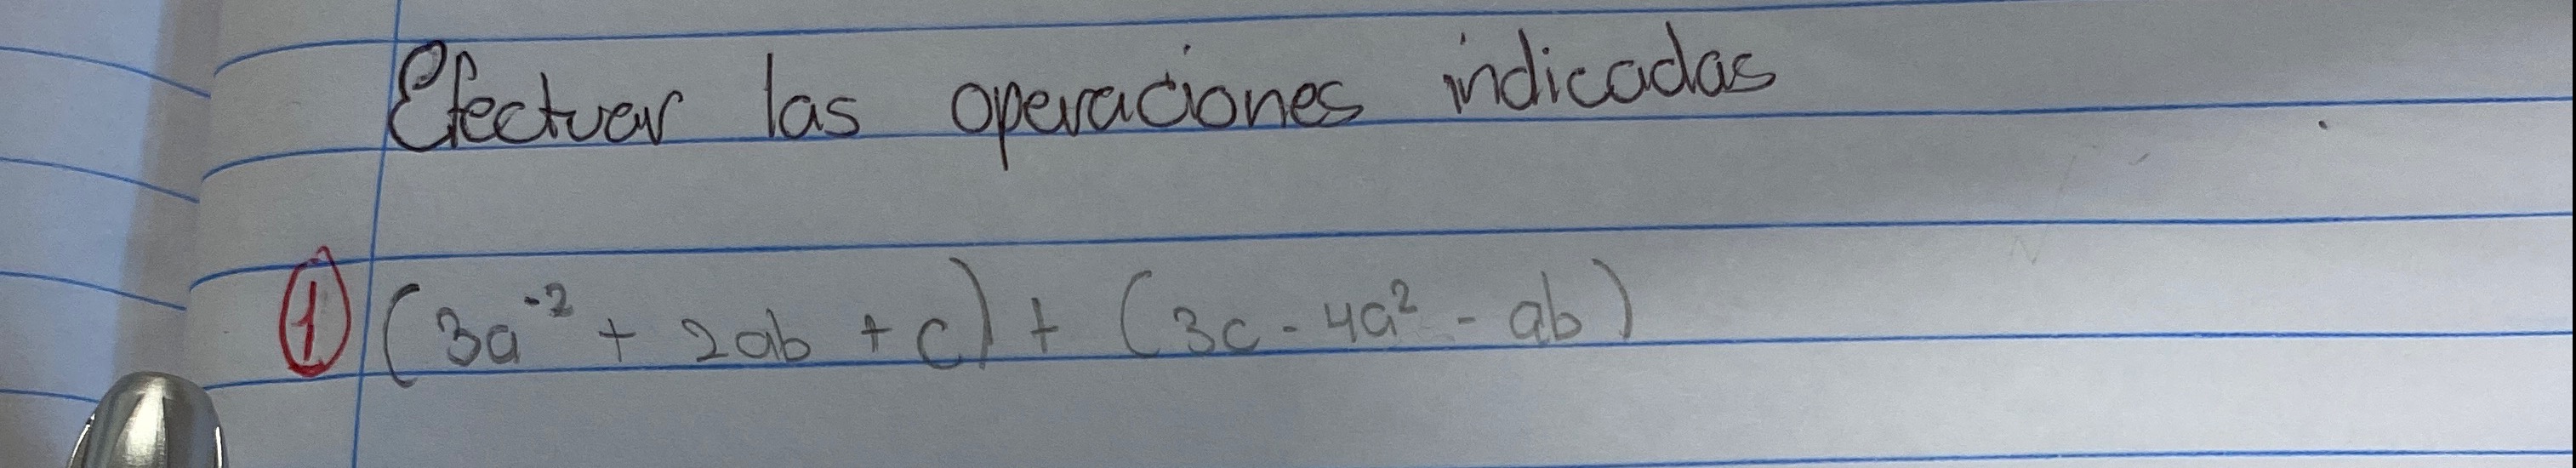 Efectuar las operaciones indicadas
① (3a⁻² + 2ab + c) + (3c - 4a² - ab)